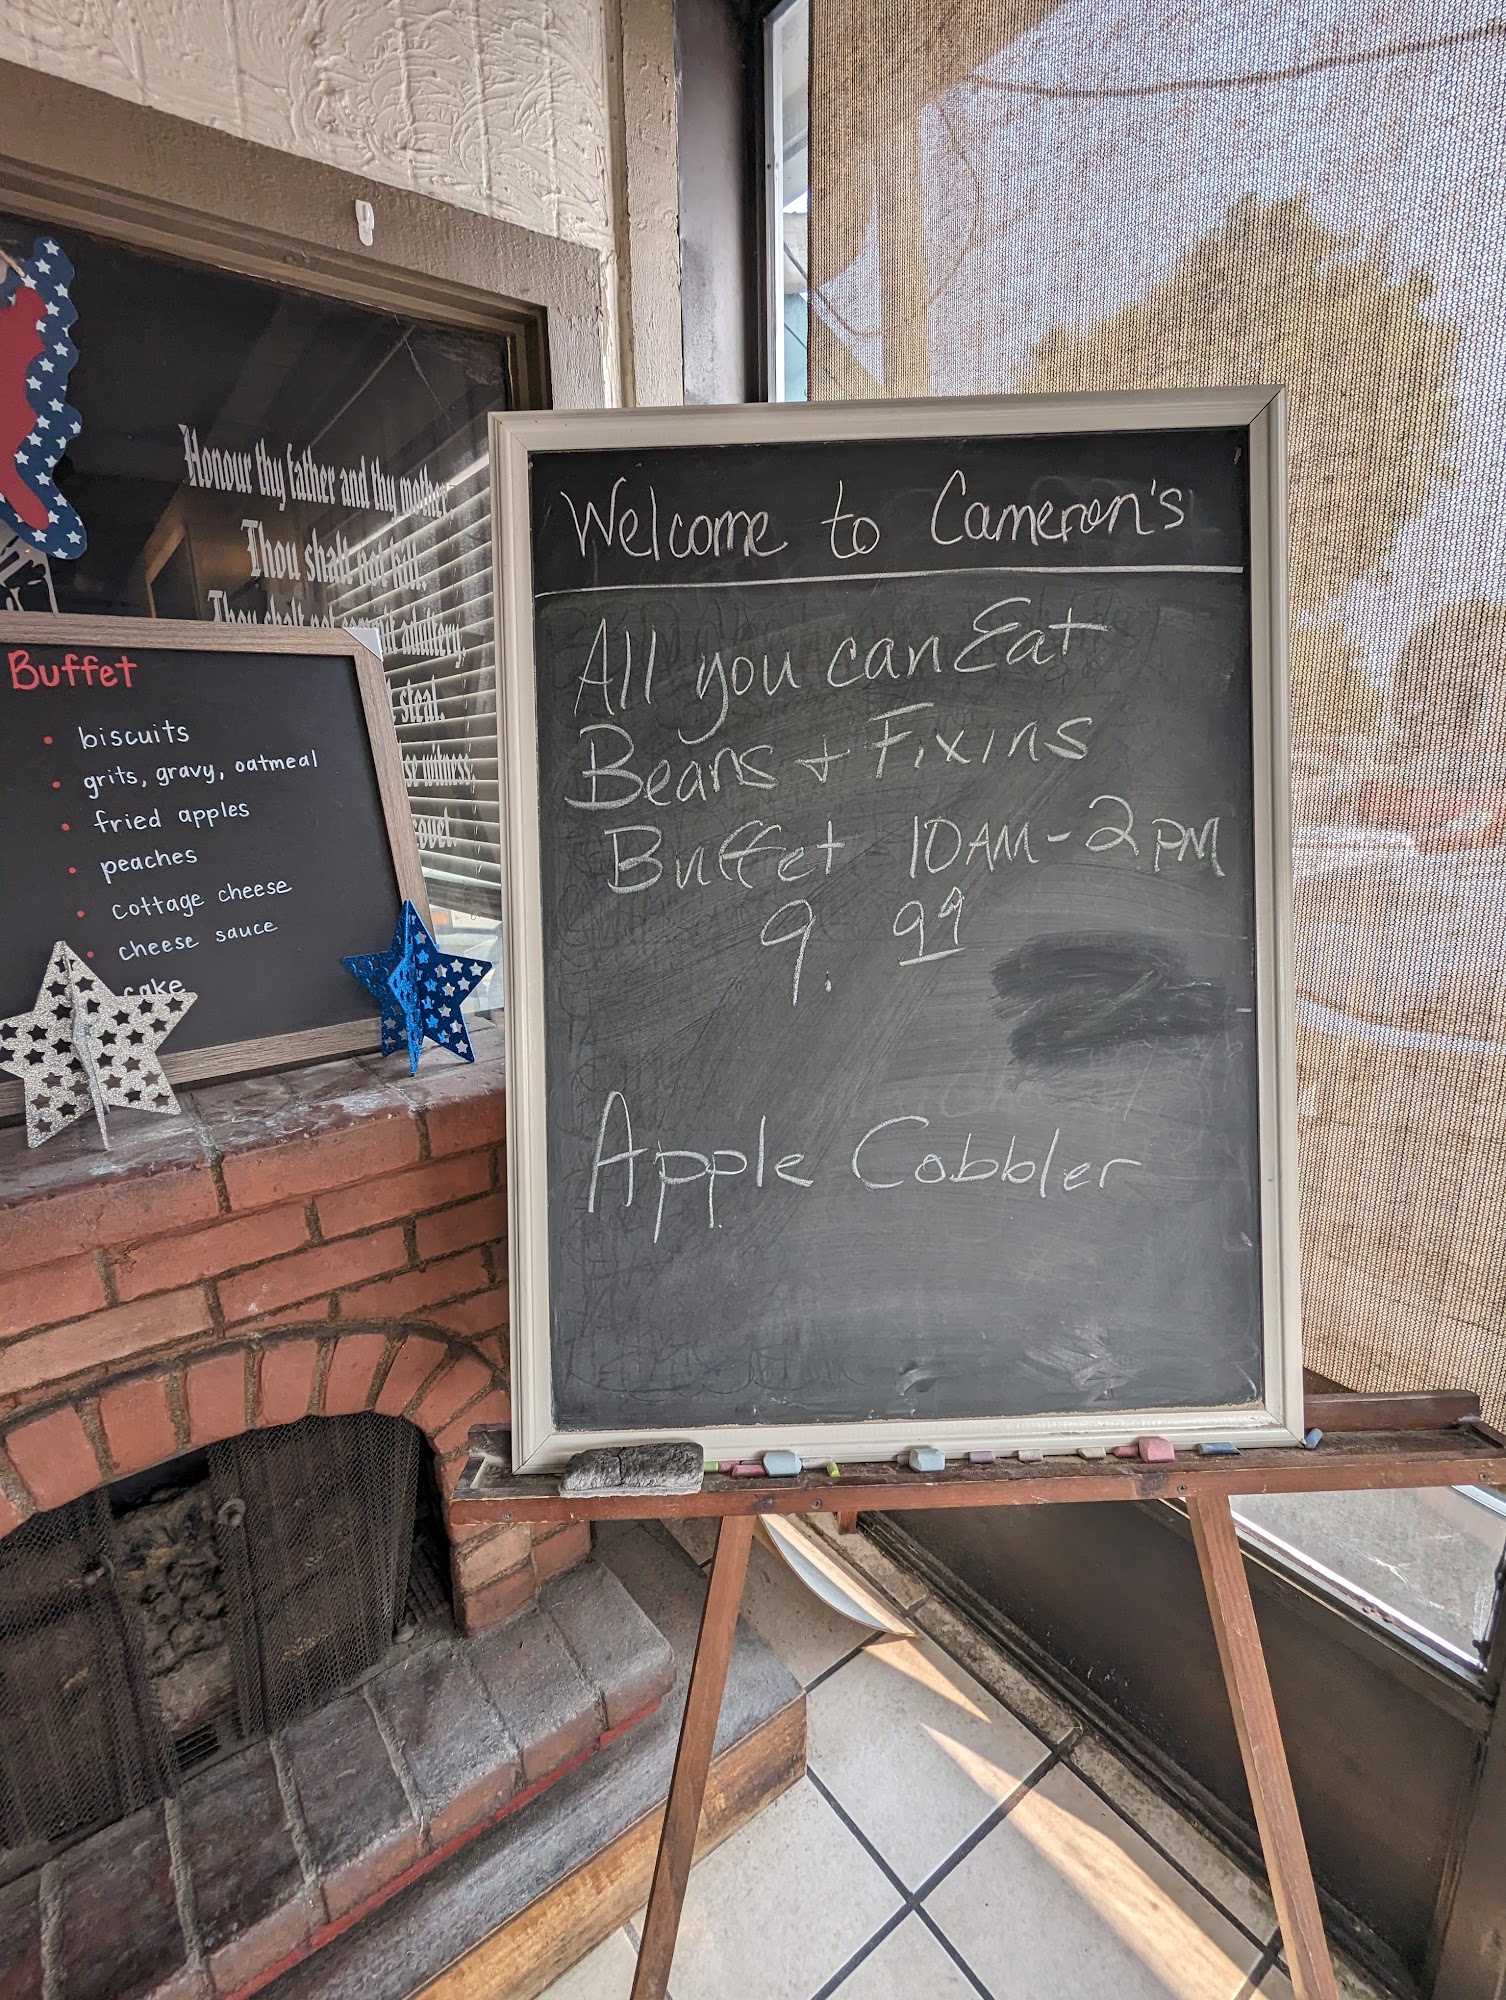 Honour thy father and thy mother,
Thou shalt not kill.
Thou shalt not commit adultery,
steal.
witness
covet
Buffet
• biscuits
• grits, gravy, oatmeal
• fried apples
• peaches
• cottage cheese
• cheese sauce
cake
Welcome to Cameron's
All you can Eat
Beans + Fixins
Buffet 10AM-2PM
9. 99
Apple Cobbler